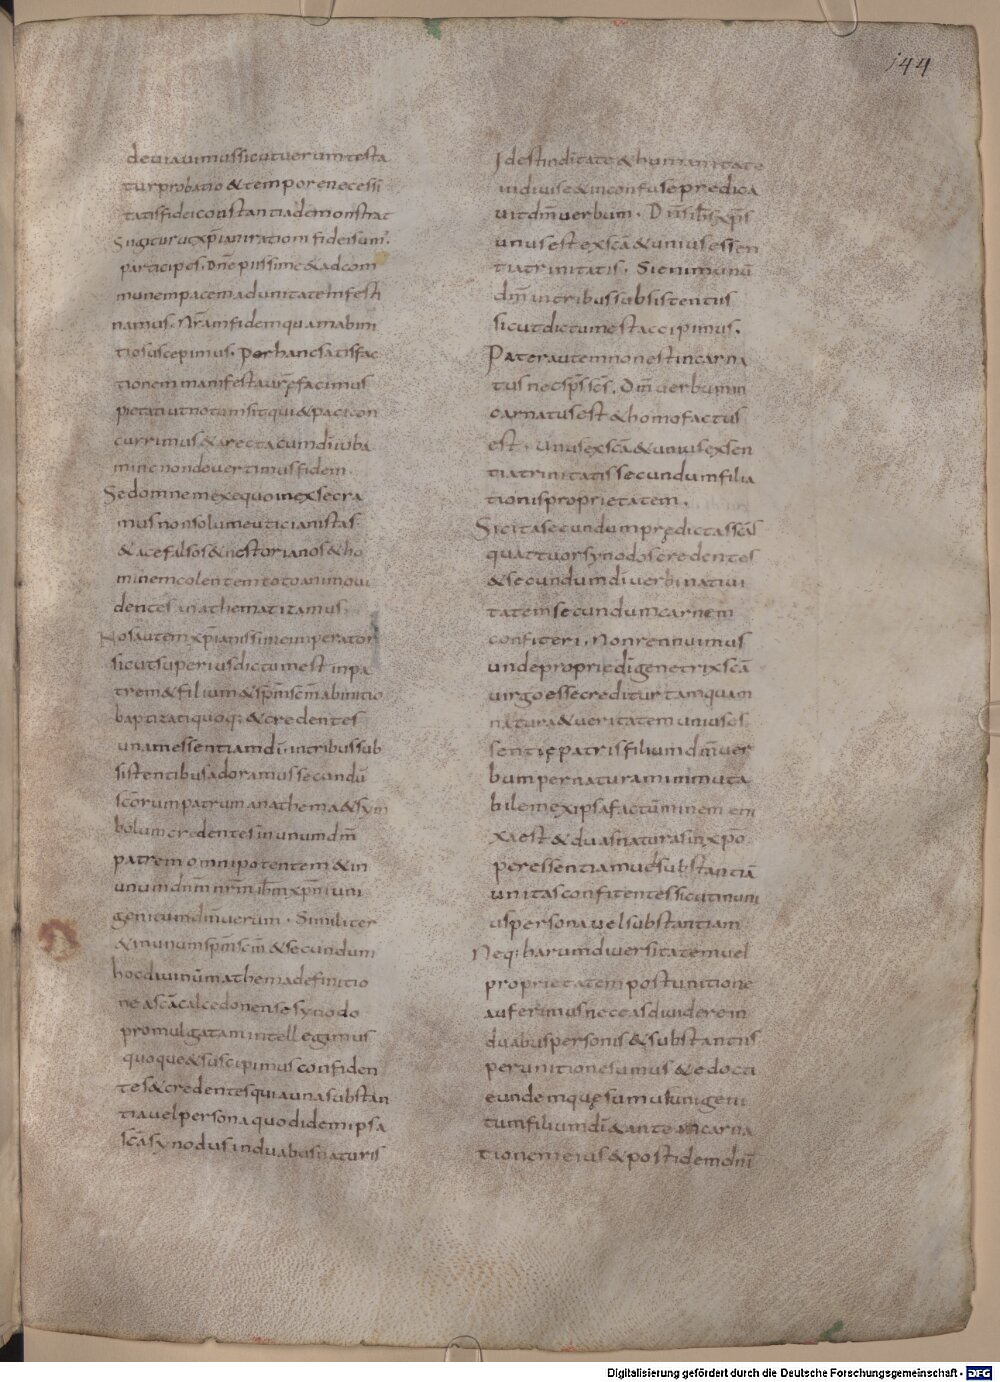 144
deviavimus sicut verum testa
tur probatio & tempore necessi
tatis fidei constantia demonstrat
Si igitur ut xp̄iani rationi fidei sum̄
participes. dn̄e piissime & ad com
munem pacem ad unitatem festi
namus. Nr̄am fidem quam ab ini
tio suscepimus. Per hanc satisfac
tionem manifesta vr̄ę facimus
pietati ut notum sit qui & paci con
currimus & a recta cum dī
minine non devertimus fidem.
Sed omnem ex equo in exsecra
mus non solum euticianistas
& acefalsos & nestorianos & ho
minem colentem toto animo vi
dentes anathematizamus
Nos autem xp̄ianissime imperator
sicut superius dictum est in pa
trem & filium & sp̄m scm̄ ab initio
baptizati quoq; & credentes
unam essentiam dī in tribus sub
sistentibus adoramus secundū
scōrum patrum anathema & sym
bolum credentes in unum dm̄
patrem omnipotentem & in
unum dn̄m nr̄m ihm̄ xp̄m uni
genitum dm̄ verum. Similiter
& in unum sp̄m scm̄ & secundum
hoc divinū mathema definitio
ne a scā calcedonense synodo
promulgatam intellegimus
quoque & suscipimus confiden
tes & credentes quia una substan
tia vel persona quod idem ipsa
scā synodus in duabus naturis
Id est in ditate & humanitate
indivise & inconfuse predica
vit dm̄ verbum. Dn̄s ihs xp̄s
unus est ex scā & unius essen
tia trinitatis. Si enim unū
dm̄ in tribus subsistentiis
sicut dictum est accipimus.
Pater autem non est incarna
tus nec sp̄s scs. Dm̄ verbum in
carnatus est & homo factus
est. unus ex scā & unius exsen
tia trinitatis secundum filia
tionis proprietatem.
Sic ita secundum prędictas scās
quattuor synodos credentes
& secundum dī verbi nativi
tatem secundum carnem
confiteri. Non rennuimus
unde proprie dī genetrix scā
virgo esse creditur tamquam
natura & veritatem unius es
sentię patris filium dm̄ ver
bum per naturam inmuta
bilem ex ipsa factum inem eni
xa est & duas naturas in xp̄o
per essentiam vel substantiā
unitas confitentes sicut in uni
us persona vel substantiam
Neq; harum diversitatem vel
proprietatem post unitione
auferimus nec eas dividere in
duabus personis & substantiis
per unitione sumus & edocti
eundemquę sumus unigeni
tum filium dī & ante incarna
tionem eius & post idem dn̄i
Digitalisierung gefördert durch die Deutsche Forschungsgemeinschaft - DFG